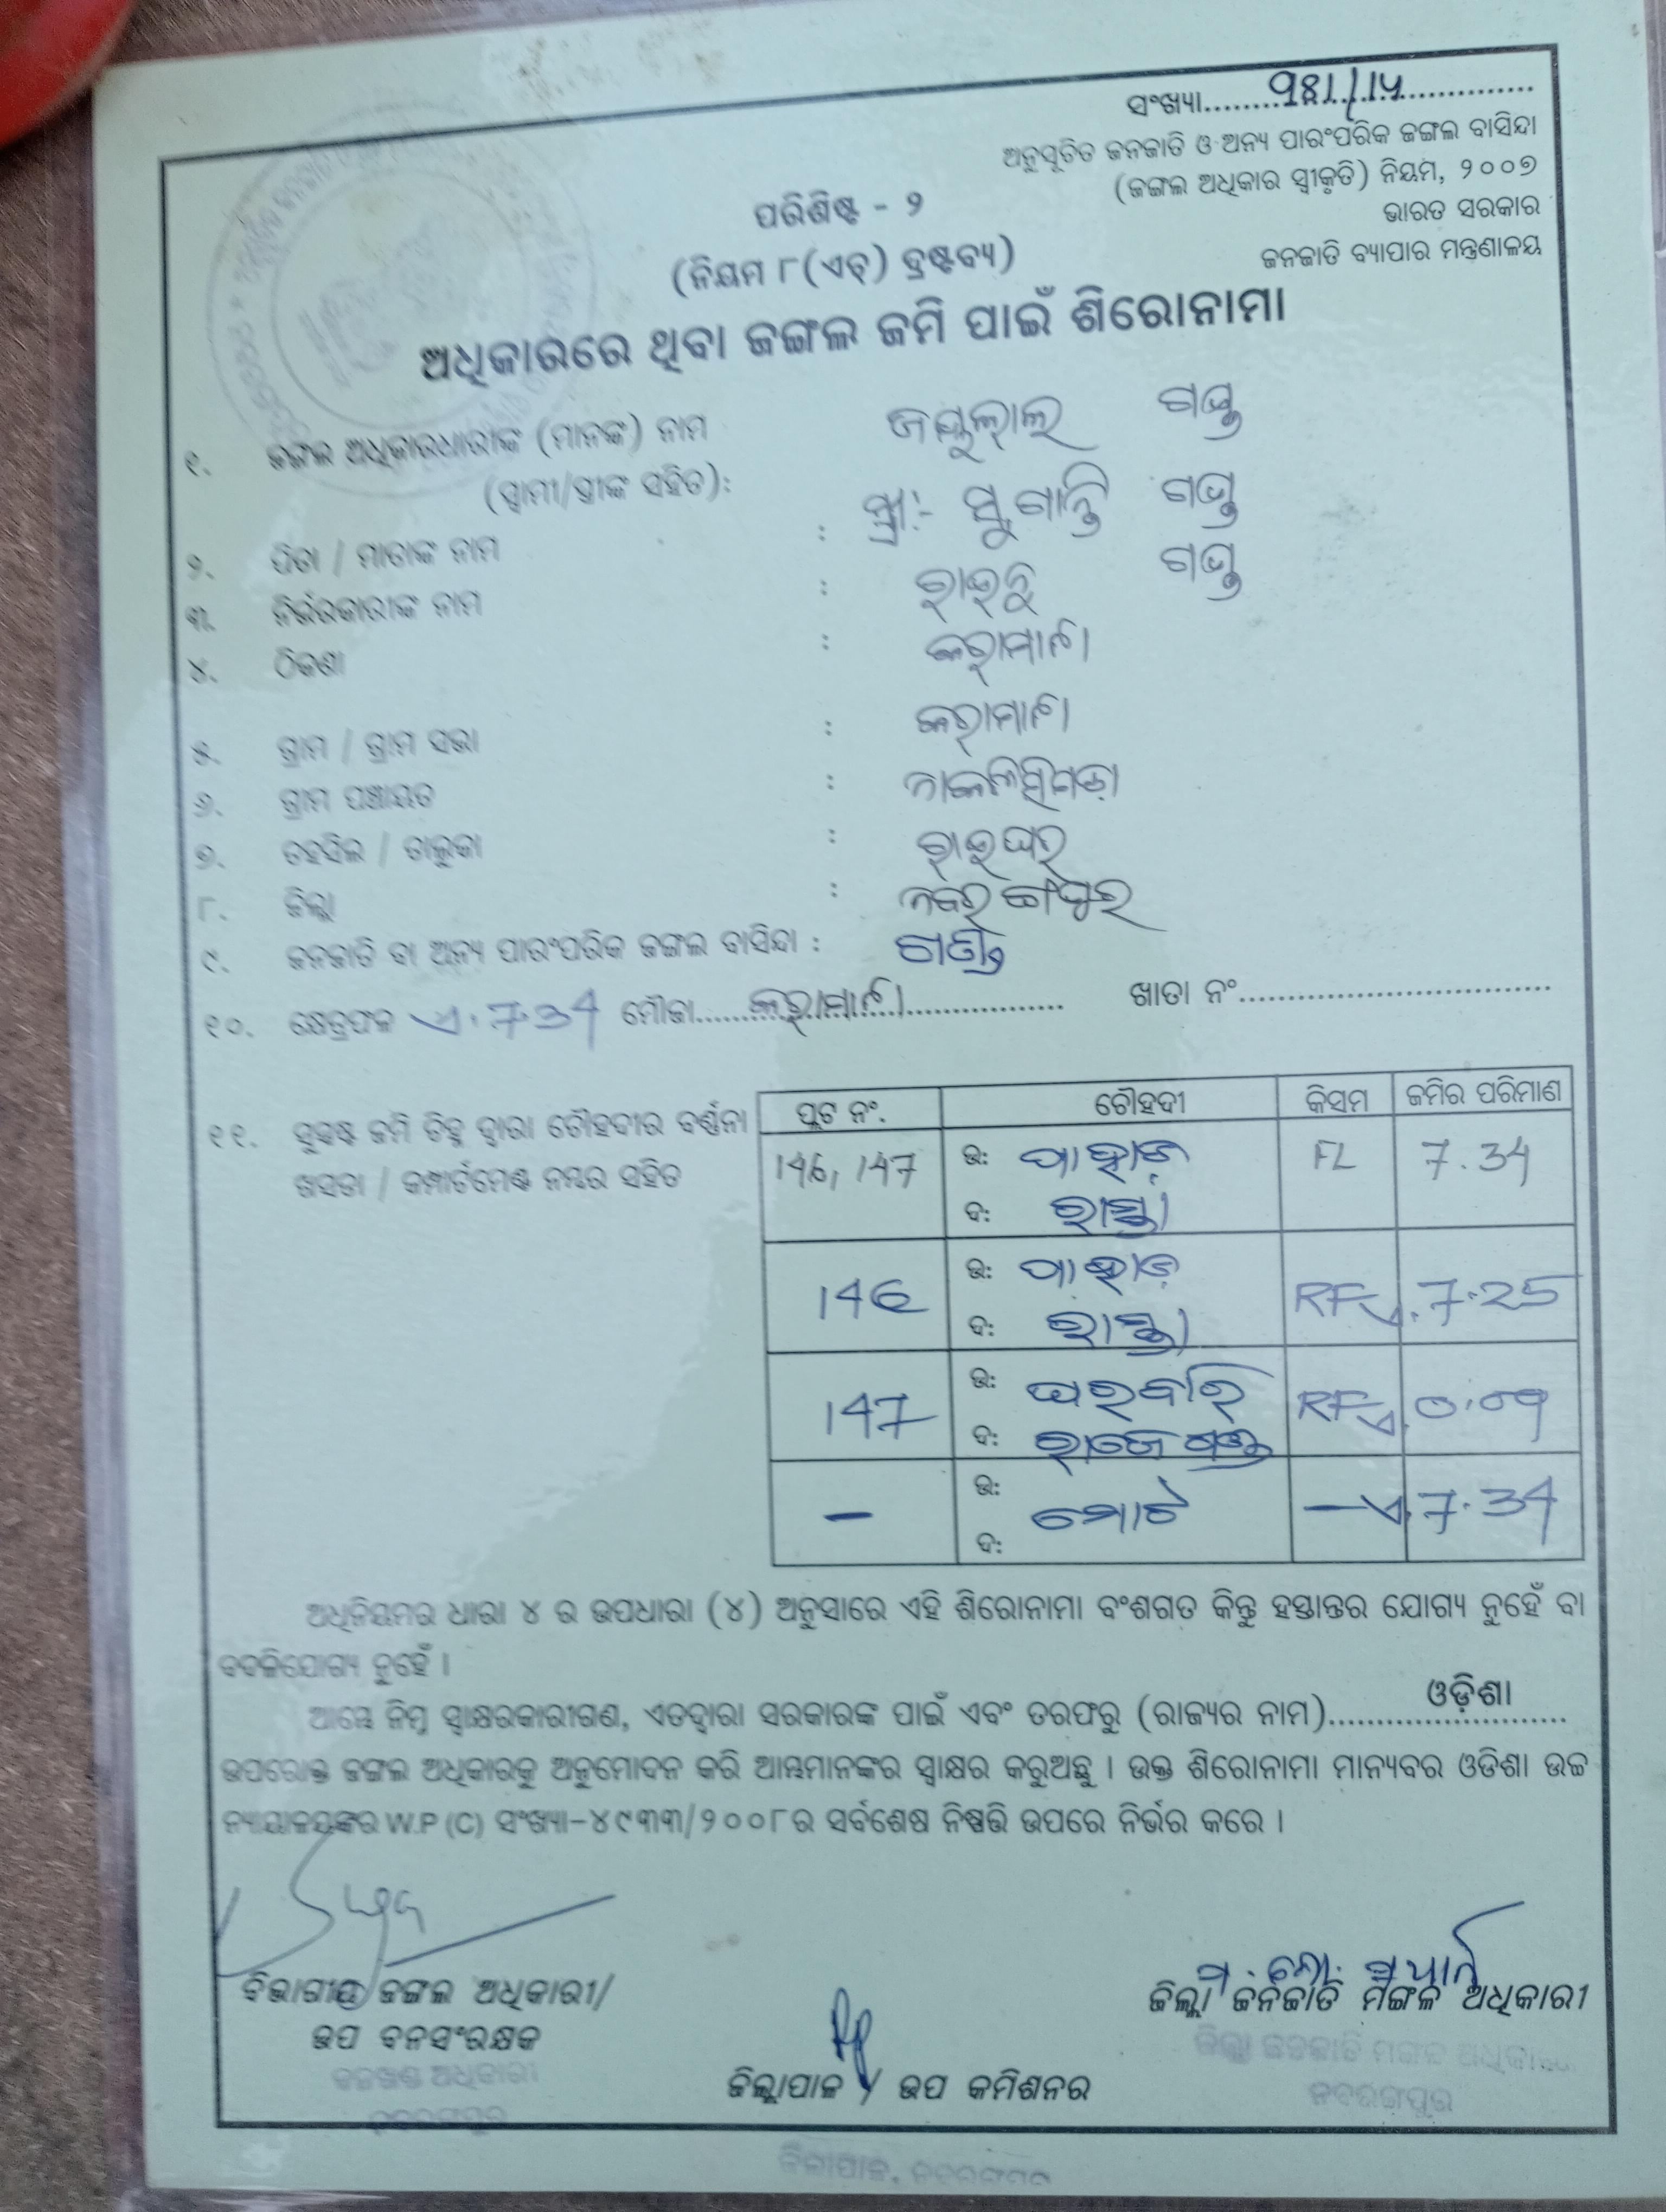 ସଂଖ୍ୟା
ଅନୁସୂଚିତ ଜନଜାତି ଓ ଅନ୍ୟ ପାରଂପରିକ ଜଙ୍ଗଲ ବାସିନ୍ଦା
(ଜଙ୍ଗଲ ଅଧିକାର ସ୍ୱୀକୃତି) ନିୟମ, ୨୦୦୭
ଭାରତ ସରକାର
ଜନଜାତି ବ୍ୟାପାର ମନ୍ତ୍ରଣାଳୟ
ପରିଶିଷ୍ଟ - ୨
(ନିୟମ ୮(ଏଚ୍) ଦ୍ରଷ୍ଟବ୍ୟ)
ଅଧିକାରରେ ଥିବା ଜଙ୍ଗଲ ଜମି ପାଇଁ ଶିରୋନାମା
୧. ଜଙ୍ଗଲ ଅଧିକାରଧାରୀଙ୍କ (ମାନଙ୍କ) ନାମ ଗଣ୍ଡ
(ସ୍ୱାମୀ/ସ୍ତ୍ରୀଙ୍କ ସହିତ): ସ୍ତ୍ରୀ:- ଗଣ୍ଡ
୨. ପିତା / ମାତାଙ୍କ ନାମ : ଗଣ୍ଡ
୩. ନିର୍ଭରକାରୀଙ୍କ ନାମ :
୪. ଠିକଣା :
୫. ଗ୍ରାମ / ଗ୍ରାମ ସଭା :
୬. ଗ୍ରାମ ପଞ୍ଚାୟତ :
୭. ତହସିଲ / ତାଲୁକା : ରାଇଘର
୮. ଜିଲ୍ଲା : ନବରଙ୍ଗପୁର
୯. ଜନଜାତି ବା ଅନ୍ୟ ପାରଂପରିକ ଜଙ୍ଗଲ ବାସିନ୍ଦା : ଗଣ୍ଡ
୧୦. କ୍ଷେତ୍ରଫଳ ଏ.7.34 ମୌଜା ଖାତା ନଂ
୧୧. ସୁସ୍ପଷ୍ଟ ଜମି ଚିହ୍ନ ଦ୍ୱାରା ଚୌହଦୀର ବର୍ଣ୍ଣନା
ଖସଡା / କମ୍ପାର୍ଟମେଣ୍ଟ ନମ୍ବର ସହିତ
ପ୍ଲଟ ନଂ. ଚୌହଦୀ କିସମ ଜମିର ପରିମାଣ
146, 147 ଉ: ପାହାଡ଼ FL 7.34
ଦ: ରାସ୍ତା
146 ଉ: ପାହାଡ଼ RF ଏ.7.25
ଦ: ରାସ୍ତା
147 ଉ: ଘରବାରି RF ଏ.0.09
ଦ: ଗଣ୍ଡ
- ଉ: ମୋଟ - ଏ.7.34
ଦ:
ଅଧିନିୟମର ଧାରା ୪ ର ଉପଧାରା (୪) ଅନୁସାରେ ଏହି ଶିରୋନାମା ବଂଶଗତ କିନ୍ତୁ ହସ୍ତାନ୍ତର ଯୋଗ୍ୟ ନୁହେଁ ବା
ବଦଳିଯୋଗ୍ୟ ନୁହେଁ ।
ଆମ୍ଭେ ନିମ୍ନ ସ୍ୱାକ୍ଷରକାରୀଗଣ, ଏତଦ୍ୱାରା ସରକାରଙ୍କ ପାଇଁ ଏବଂ ତରଫରୁ (ରାଜ୍ୟର ନାମ) ଓଡ଼ିଶା
ଉପରୋକ୍ତ ଜଙ୍ଗଲ ଅଧିକାରକୁ ଅନୁମୋଦନ କରି ଆମ୍ଭମାନଙ୍କର ସ୍ୱାକ୍ଷର କରୁଅଛୁ । ଉକ୍ତ ଶିରୋନାମା ମାନ୍ୟବର ଓଡିଶା ଉଚ୍ଚ
ନ୍ୟାୟାଳୟଙ୍କର W.P (C) ସଂଖ୍ୟା-୪୯୩୩/୨୦୦୮ର ସର୍ବଶେଷ ନିଷ୍ପତ୍ତି ଉପରେ ନିର୍ଭର କରେ ।
ବିଭାଗୀୟ ଜଙ୍ଗଲ ଅଧିକାରୀ/
ଉପ ବନସଂରକ୍ଷକ
ଜିଲ୍ଲାପାଳ / ଉପ କମିଶନର
ଜିଲ୍ଲା ଜନଜାତି ମଙ୍ଗଳ ଅଧିକାରୀ
ଜିଲ୍ଲା ଜନଜାତି ମଙ୍ଗଳ ଅଧିକାରୀ
ନବରଙ୍ଗପୁର
ବନଖଣ୍ଡ ଅଧିକାରୀ
ଜିଲ୍ଲାପାଳ, ନବରଙ୍ଗପୁର